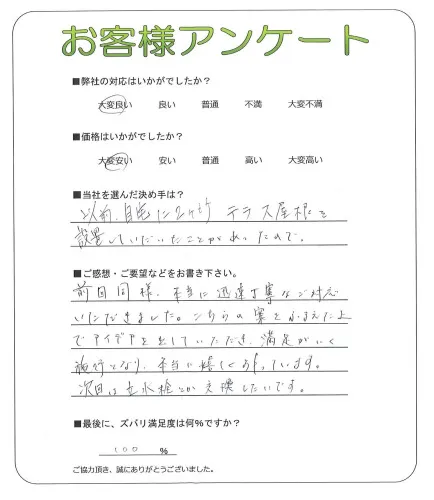 お客様アンケート
■弊社の対応はいかがでしたか?
大変良い 良い 普通 不満 大変不満
■価格はいかがでしたか?
大変安い 安い 普通 高い 大変高い
■当社を選んだ決め手は?
以前、自宅に2ヶ所 テラス屋根を
設置していただいたことがあったので。
■ご感想・ご要望などをお書き下さい。
前回同様、本当に迅速丁寧なご対応
いただきました。こちらの案をふまえた上
でアイデアを出していただき、満足がいく
施行となり、本当に嬉しく思っています。
次回は立水栓とか交換したいです。
■最後に、ズバリ満足度は何%ですか?
100 %
ご協力頂き、誠にありがとうございました。